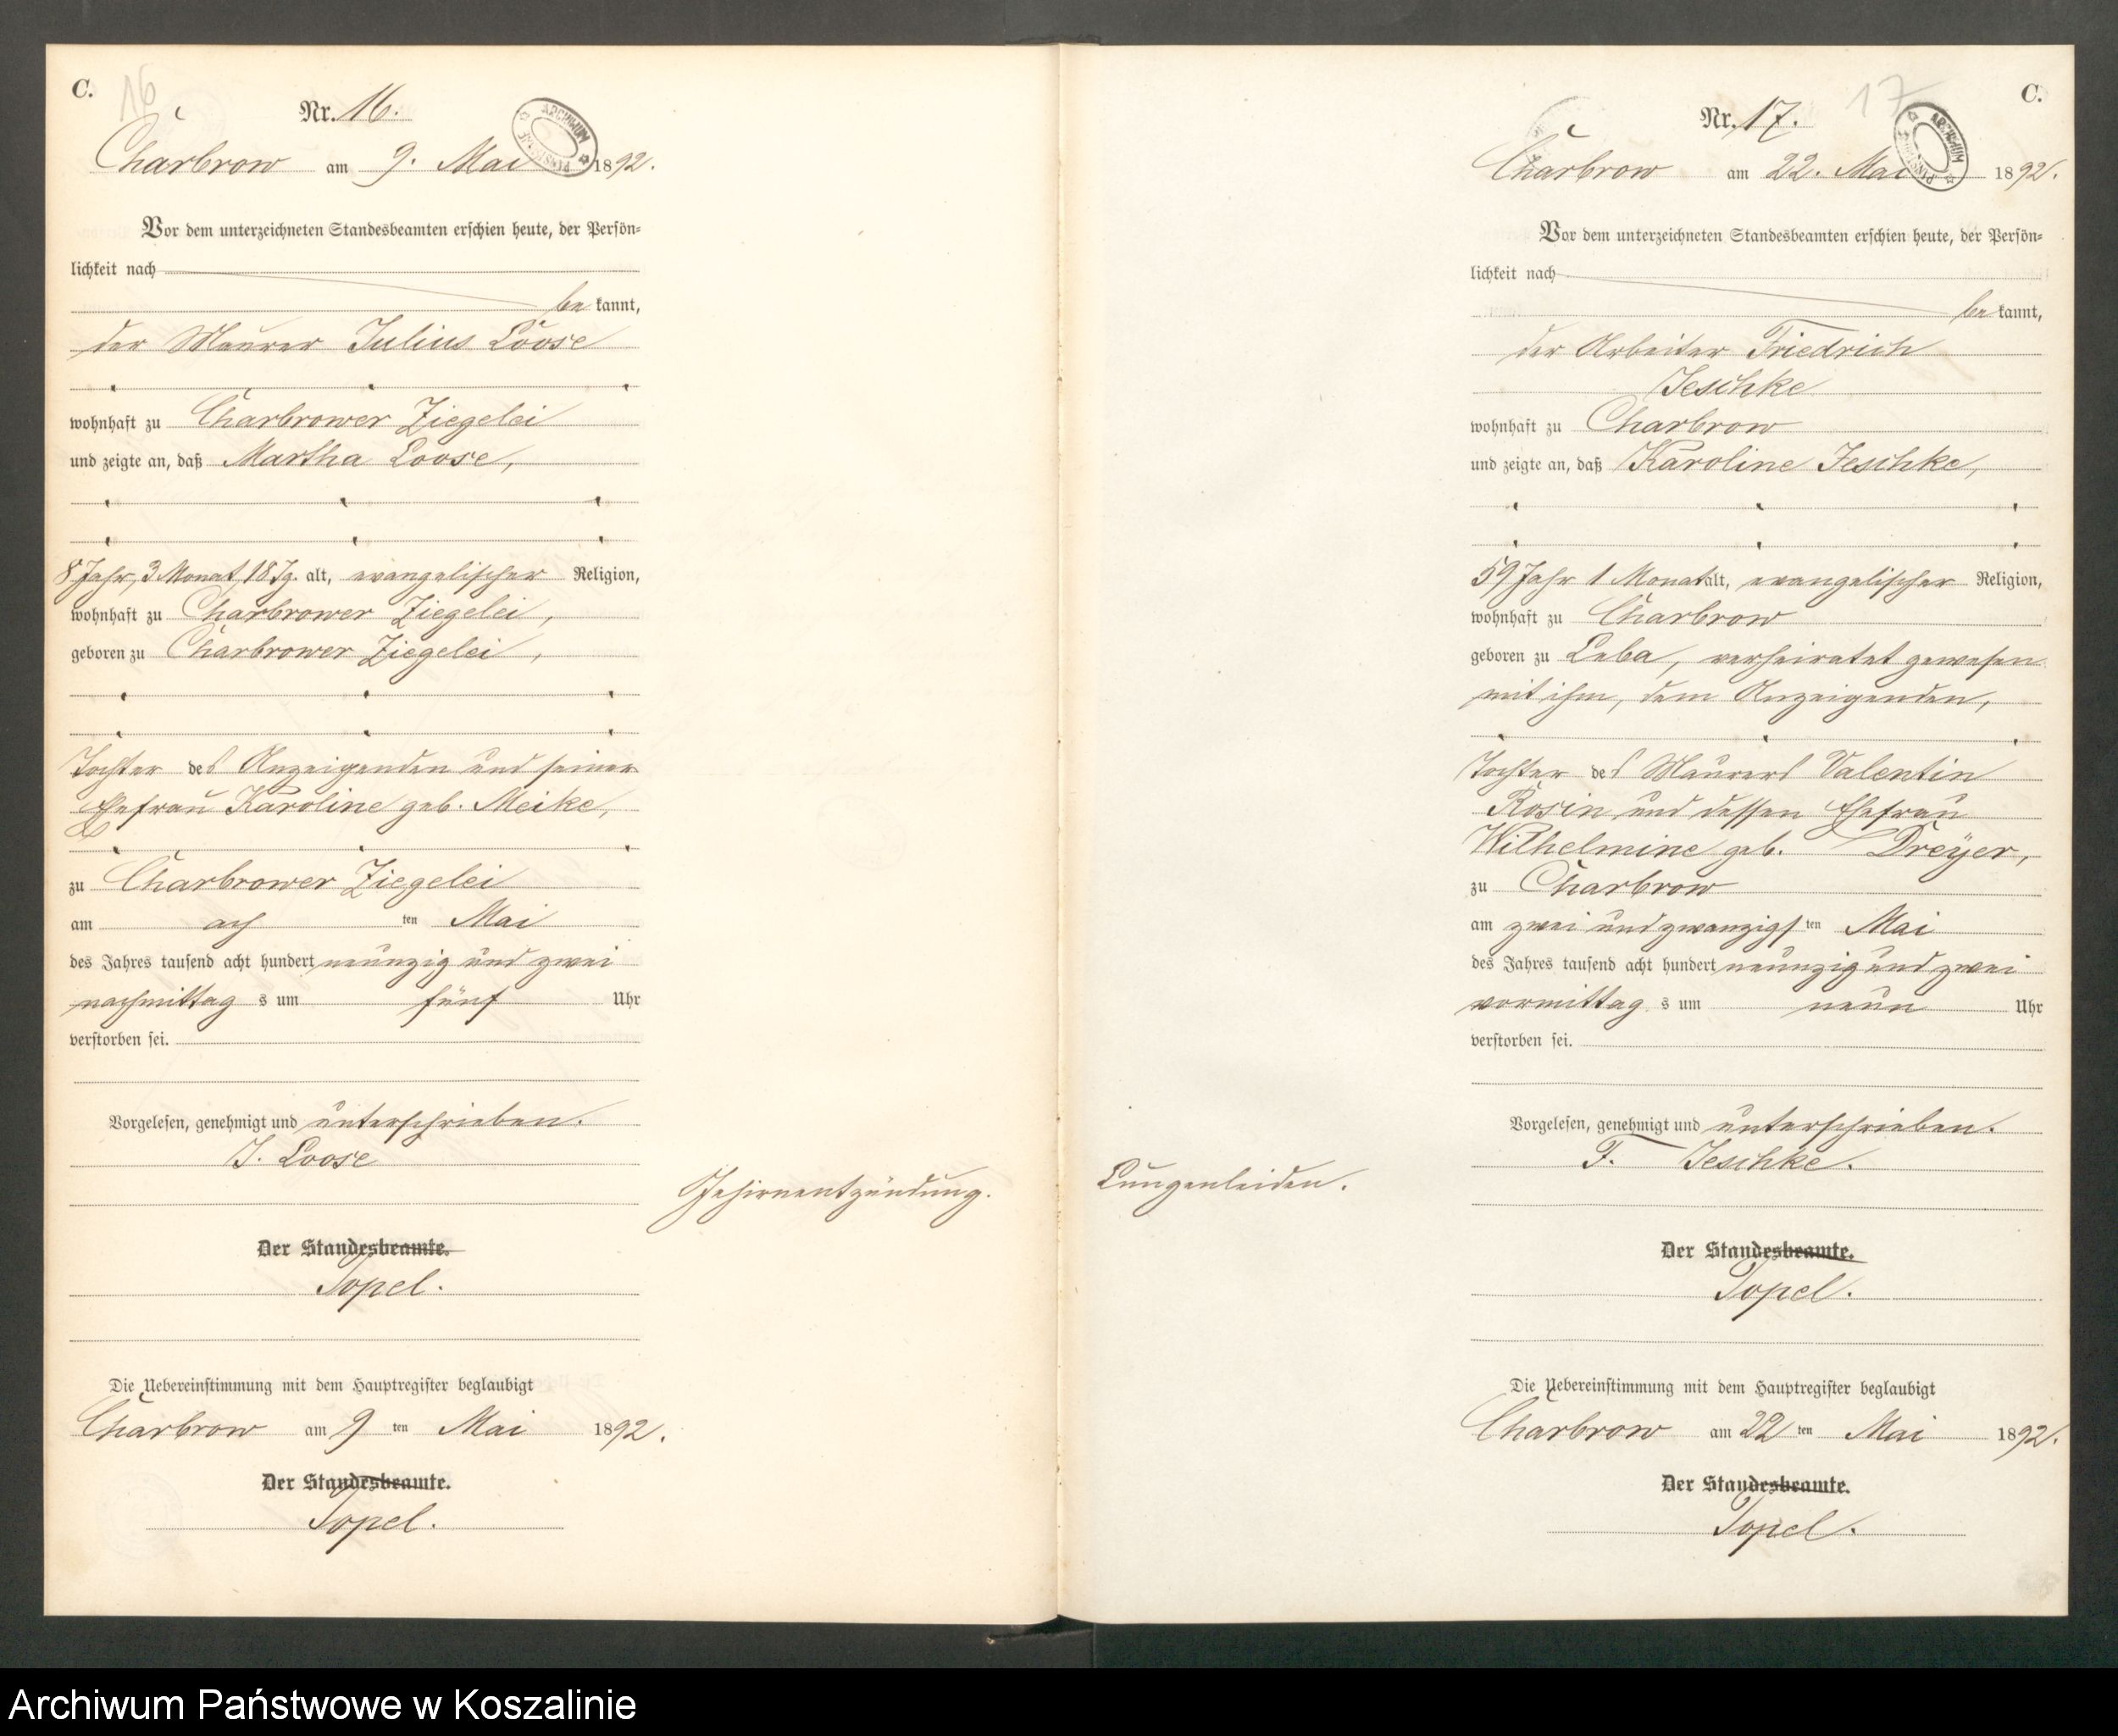 C.
16
Nr. 16.
ARCHIWUM PAŃSTWOWE
Charbrow am 9. Mai 1892.
Vor dem unterzeichneten Standesbeamten erschien heute, der Persön-
lichkeit nach
be kannt,
der Maurer Julius Loose
wohnhaft zu Charbrower Ziegelei
und zeigte an, daß Martha Loose,
8 Jahr, 3 Monat, 18 Tg. alt, evangelischer Religion,
wohnhaft zu Charbrower Ziegelei,
geboren zu Charbrower Ziegelei,
Tochter des Anzeigenden und seiner
Ehefrau Karoline geb. Meike,
zu Charbrower Ziegelei
am ach ten Mai
des Jahres tausend acht hundert neunzig und zwei
nachmittag s um fünf Uhr
verstorben sei.
Vorgelesen, genehmigt und unterschrieben.
J. Loose
Gehirnentzündung.
Der Standesbeamte.
Topel.
Die Uebereinstimmung mit dem Hauptregister beglaubigt
Charbrow am 9 ten Mai 1892.
Der Standesbeamte.
Topel.
C.
17
Nr. 17.
ARCHIWUM PAŃSTWOWE
Charbrow am 22. Mai 1892.
Vor dem unterzeichneten Standesbeamten erschien heute, der Persön-
lichkeit nach
be kannt,
der Arbeiter Friedrich
Jeschke
wohnhaft zu Charbrow
und zeigte an, daß Karoline Jeschke,
59 Jahr 1 Monat alt, evangelischer Religion,
wohnhaft zu Charbrow
geboren zu Leba, verheiratet gewesen
mit ihm, dem Anzeigenden,
Tochter des Maurers Valentin
Rosin und dessen Ehefrau
Wilhelmine geb. Dreyer,
zu Charbrow
am zwei und zwanzigs ten Mai
des Jahres tausend acht hundert neunzig und zwei
vormittag s um neun Uhr
verstorben sei.
Vorgelesen, genehmigt und unterschrieben.
F. Jeschke.
Lungenleiden.
Der Standesbeamte.
Topel.
Die Uebereinstimmung mit dem Hauptregister beglaubigt
Charbrow am 22 ten Mai 1892.
Der Standesbeamte.
Topel.
Archiwum Państwowe w Koszalinie